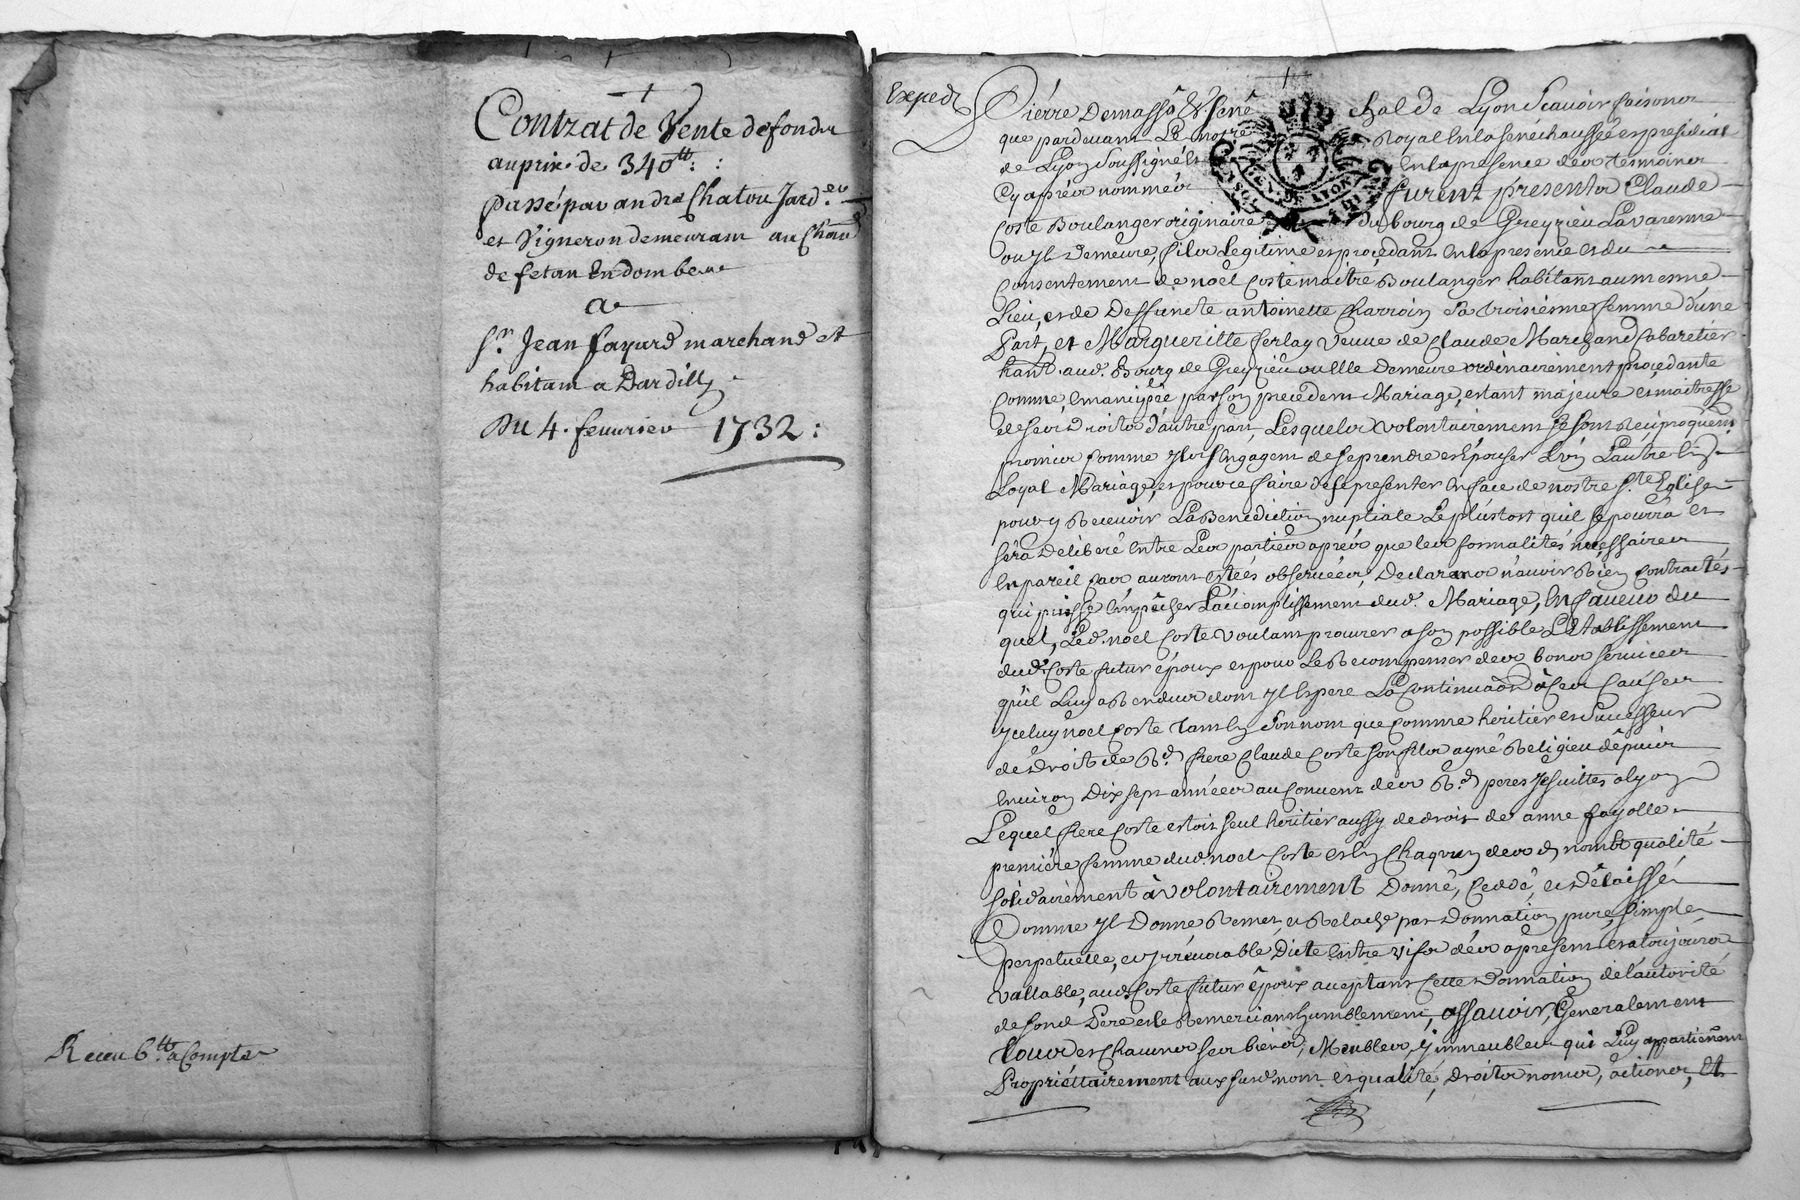 Contrat de Vente de fonds
au prix de 340 tt :
Passé par andré Chatou Jard.er
et Vigneron demeurant au
de fetan En dombes
a
Sr. Jean fayard marchand et
habitant a Dardilly
Du 4. feuurier 1732 :
Receu 6 tt a Compte
Exped
Pierre Demasso Esr. Sené chal de Lyon Scauoir faisons
que pardeuant Le notre Royal En la senéchaussée et presidial
de Lyon soussigné et En la presence des temoins
Cy aprés nommés furent presents Claude
Coste Boulanger originaire du bourg de Greyzieu La varenne
ou yl Demeure, fils Legitime et procedant En la presence et du
Consentement de noël Coste maitre Boulanger habitant au mesme
Lieu, et de Deffuncte antoinette Charroin sa troisieme femme d'une
Part, et Margueritte ferlay veuue de Claude Marchand Cabaretier
aud. Bourg de Greyzieu ou Elle Demeure ordinairement procedante
Comme Emancipée par son precedent Mariage, estant majeure et maitresse
de ses Droits d'autre part, Lesquels volontairement se sont Reciproquemt.
promis Comme yls s'Engagent de se prendre et Epouser L'un L'autre En
Loyal Mariage, et pour ce faire de se presenter En face de nostre Ste. Eglise
pour y Receuoir La Benediction nuptiale Le plustost qu'il se pourra et
séra Deliberé Entre Les parties aprés que les formalités necessaires
En pareil Cas auront estées obseruées, Declarant n'auoir Rien Contractés
qui puisse Empêcher L'accomplissement dud. Mariage, En faueur du
quel, Led. noël Coste voulant procurer a son possible L'Etablissement
dud. Coste futur époux et pour Le Recompenser des bons seruices
qu'il Luy a Rendus dont yl Espere La Continuaôn à Ces Causes
yceluy noël Coste tant En son nom que Comme héritier et Successeur
de Droit de Rd. frere Claude Coste son fils ayné Religieu dépuis
Enuiron Dix sept années au Conuent des Rd. peres Jesuittes a Lyon
Lequel frere Coste estoit seul héritier aussy de droit de anne fayolle
premiére femme dud. noël Coste et En Chaqu'un des d. noms et qualité
solidairement à volontairement Donné, Ceddé, et Délaissé
Comme yl Donne Remet, et Relache par Donnation pure, simple,
perpetuelle, et yrréuocable Dite Entre vifs dés a present et a toujours
vallable, aud. Coste futur époux acceptant Cette Donnation de l'autorité
de sond. Pere et le Remerciant humblement, assauoir, Généralement
tous et Chacuns ses biens, Meubles, yimmeubles qui Luy appartiennent
Propriéttairement aux susd. nom et qualité, Droits noms, actions, Et